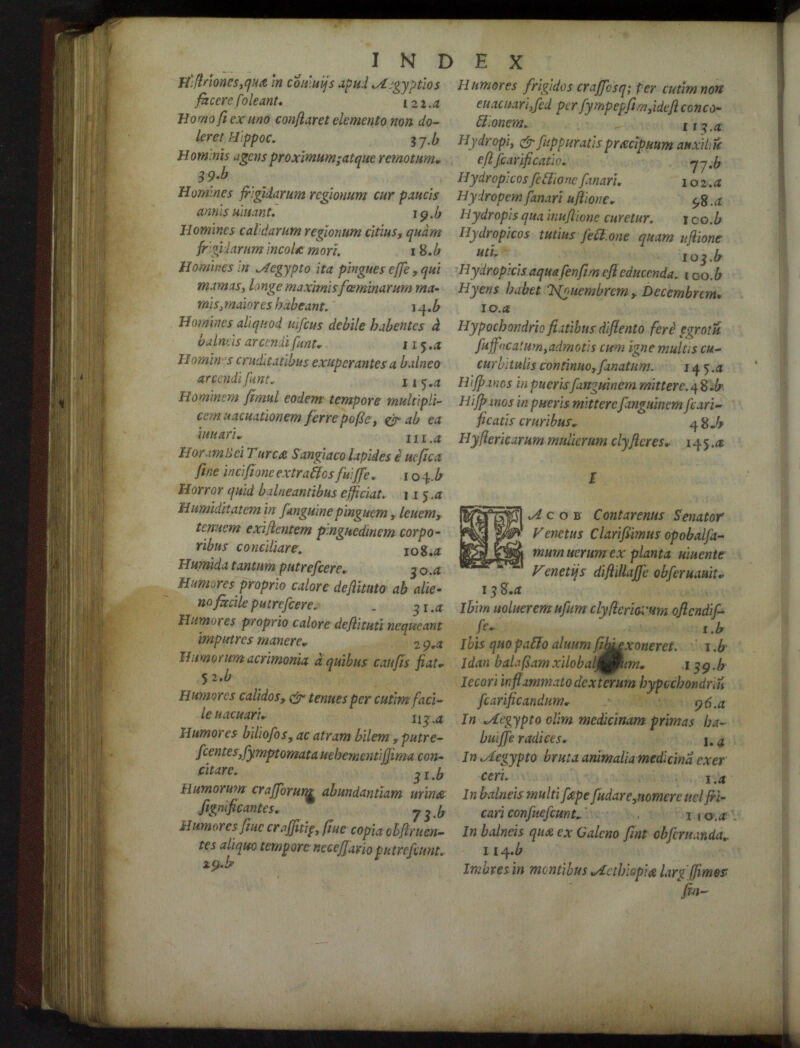 INDEX
Histriones, quæ in conuiuijs apud Aegyptios
facere soleant. 122.a
Homo si ex uno constaret elemento non do-
leret Hippoc. 37.b
Hominis agens proximum; atque remotum.
39.b
Homines frigidarum regionum cur paucis
annis uiuant. 19.b
Homines calidarum regionum citius, quàm
frigidarum incolæ mori. 18.b
Homines in Aegypto ita pingues esse, qui
mamas, longe maximis fœminarum ma-
mis, maiores habeant. 14.b
Homines aliquod uiscus debile habentes à
balneis arcendi sunt. 115.a
Homines cruditatibus exuperantes a balneo
arcendi sunt. 115.a
Hominem simul eodem tempore multipli-
cem uacuationem ferre posse, & ab ea
iuuari. 111.a
Horambei Turcæ Sangiaco lapides è uesica
sine incisione extractos fuisse. 104.b
Horror quid balneantibus efficiat. 115.a
Humiditatem in sanguine pinguem, leuem,
tenuem existentem pinguedinem corpo-
ribus conciliare. 108.a
Humida tantum putrescere. 30.a
Humores proprio calore destituto ab alie-
no facile putrescere. 31.a
Humores proprio calore destituti nequeant
imputres manere. 29.a
Humorum acrimonia à quibus causis fiat.
52.b
Humores calidos, & tenues per cutim faci-
le uacuari. 113.a
Humores biliosos, ac atram bilem, putre-
scentes, symptomata uehementissima con-
citare. 31.b
Humorum crassorum abundantiam urinæ
significantes. 73.b
Humores siue crassitie, siue copia obstruen-
tes aliquo tempore necessario putrescunt.
29.b
Humores frigidos crassosq; per cutim non
euacuari, sed per sympepsim, idest conco-
ctionem. 113.a
Hydropi, & suppuratis præcipuum auxiliũ
est scarificatio. 77.b
Hydropicos sectione sanari. 102.a
Hydropem sanari ustione. 98.a
Hydropis qua inustione curetur. 100.b
Hydropicos tutius sectione quam ustione
uti. 103.b
Hydropicis aqua sensim est educenda. 100.b
Hyens habet Nouembrem, Decembrem.
10.a
Hypochondrio flatibus distento ferè egrotũ
suffocatum, admotis cum igne multis cu-
curbitulis continuo, sanatum. 145.a
Hispanos in pueris sanguinem mittere. 48.b
Hispanos in pueris mittere sanguinem scari-
ficatis cruribus. 48.b
Hystericarum mulierum clysteres. 145.a
I
IACOB Contarenus Senator
Venetus Clarissimus opobalsa-
mum uerum ex planta uiuente
Venetijs distillasse obseruauit.
138.a
Ibim uoluerem usum clysteriorum ostendis-
se. 1.b
Ibis quo pacto aluum sibi exoneret. 1.b
Idan balassam xilobalsamum. 139.b
Iecori inflammato dexterum hypochondriũ
scarificandum. 96.a
In Aegypto olim medicinam primas ha-
buisse radices. 1.a
In Aegypto bruta animalia medicina exer
ceri. 1.a
In balneis multi sæpe sudare, uomere uel fri-
cari consuescunt. 110.a
In balneis quæ ex Galeno sint obseruanda.
114.b
Imbres in montibus Aethiopiæ largissimos
fiu-